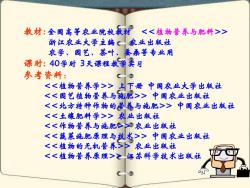 教材:全国高等农业院校教材 <<植物营养与肥料>>
浙江农业大学主编 农业出版社
农学、园艺、茶叶、蚕桑等专业用
课时:40学时 3天课程教学实习
参考资料:
<<植物营养学>>上下册 中国农业大学出版社
<<园艺植物营养与施肥>> 中国农业出版社
<<北方特种作物的营养与施肥>> 中国农业出版社
<<土壤肥料学>> 农业出版社
<<作物营养与施肥>> 农业出版社
<<蔬菜施肥原理与技术>> 中国农业出版社
<<植物的无机营养>> 农业出版社
<<植物营养原理>> 江苏科学技术出版社